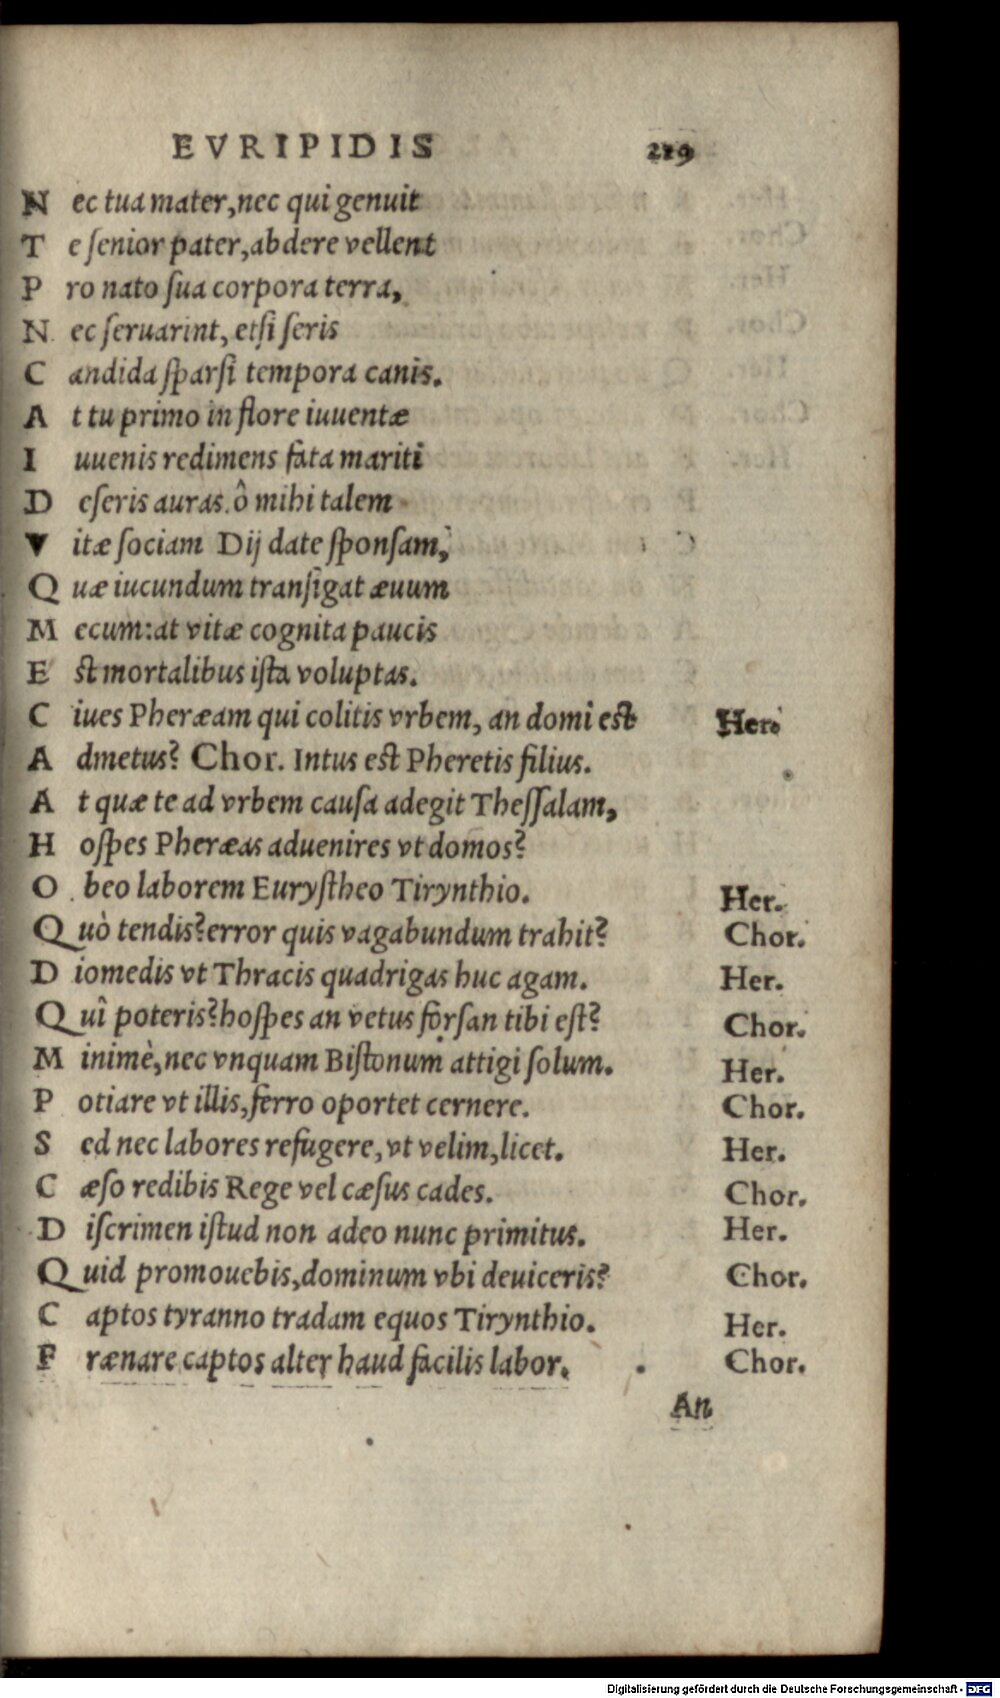 EVRIPIDIS 219
Nec tua mater, nec qui genuit
Te senior pater, abdere vellent
Pro nato sua corpora terra,
Nec seruarint, etsi seris
Candida sparsi tempora canis.
At tu primo in flore iuuentæ
Iuuenis redimens fata mariti
Deseris auras. ô mihi talem
Vitæ sociam Dij date sponsam,
Quæ iucundum transigat æuum
Mecum: at vitæ cognita paucis
Est mortalibus ista voluptas.
Ciues Pheræam qui colitis vrbem, an domi est Her.
Admetus? Chor. Intus est Pheretis filius.
At quæ te ad vrbem causa adegit Thessalam,
Hospes Pheræas aduenires vt domos?
Obeo laborem Eurystheo Tirynthio. Her.
Quò tendis? error quis vagabundum trahit? Chor.
Diomedis vt Thracis quadrigas huc agam. Her.
Quî poteris? hospes an vetus forsan tibi est? Chor.
Minimè, nec vnquam Bistonum attigi solum. Her.
Potiare vt illis, ferro oportet cernere. Chor.
Sed nec labores refugere, vt velim, licet. Her.
Cæso redibis Rege vel cæsus cades. Chor.
Discrimen istud non adeo nunc primitus. Her.
Quid promouebis, dominum vbi deuiceris? Chor.
Captos tyranno tradam equos Tirynthio. Her.
Frænare captos alter haud facilis labor. Chor.
An
Digitalisierung gefördert durch die Deutsche Forschungsgemeinschaft - DFG